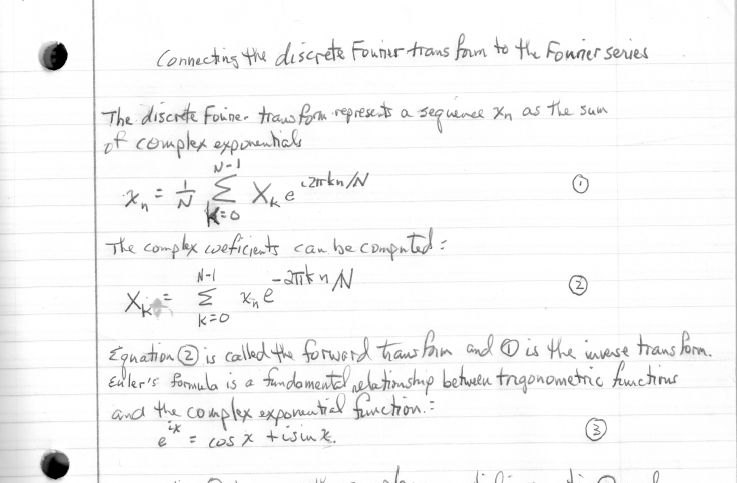 Connecting the discrete Fourier transform to the Fourier series
The discrete Fourier transform represents a sequence xₙ as the sum
of complex exponentials
xₙ = 1/N ∑_{k=0}^{N-1} X_k e^{i2πkn/N} ①
The complex coeficients can be computed:
X_k = ∑_{k=0}^{N-1} xₙ e^{-2πikn/N} ②
Equation ② is called the forward transform and ① is the inverse transform.
Euler's formula is a fundamental relationship between trigonometric functions
and the complex exponential function:
e^{ix} = cos x + i sin x. ③